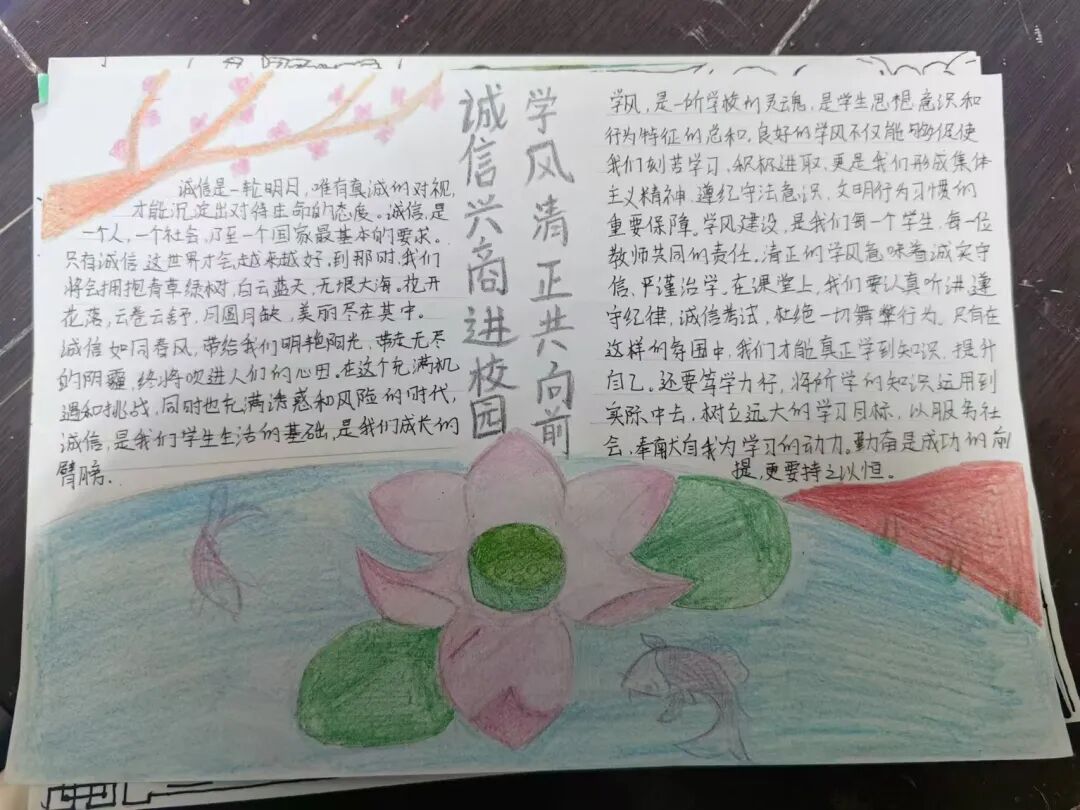 诚信兴商进校园
学风清正共向前
诚信是一轮明月，唯有真诚的对视，
才能沉淀出对待生命的态度。诚信，是
一个人，一个社会，乃至一个国家最基本的要求。
只有诚信，这世界才会越来越好，到那时，我们
将会拥抱青草绿树，白云蓝天，无垠大海。花开
花落，云卷云舒，月圆月缺，美丽尽在其中。
诚信如同春风，带给我们明艳阳光，带走无尽
的阴霾，终将吹进人们的心田。在这个充满机
遇和挑战，同时也充满诱惑和风险的时代，
诚信，是我们学生生活的基础，是我们成长的
臂膀．
学风，是一所学校的灵魂，是学生思想意识和
行为特征的总和。良好的学风不仅能够促使
我们刻苦学习，积极进取，更是我们形成集体
主义精神，遵纪守法意识，文明行为习惯的
重要保障。学风建设，是我们每一个学生，每一位
教师共同的责任。清正的学风意味着诚实守
信、严谨治学。在课堂上，我们要认真听讲，遵
守纪律，诚信考试，杜绝一切舞弊行为。只有在
这样的氛围中，我们才能真正学到知识，提升
自己。还要笃学力行，将所学的知识运用到
实际中去，树立远大的学习目标，以服务社
会，奉献自我为学习的动力。勤奋是成功的前
提，更要持之以恒。